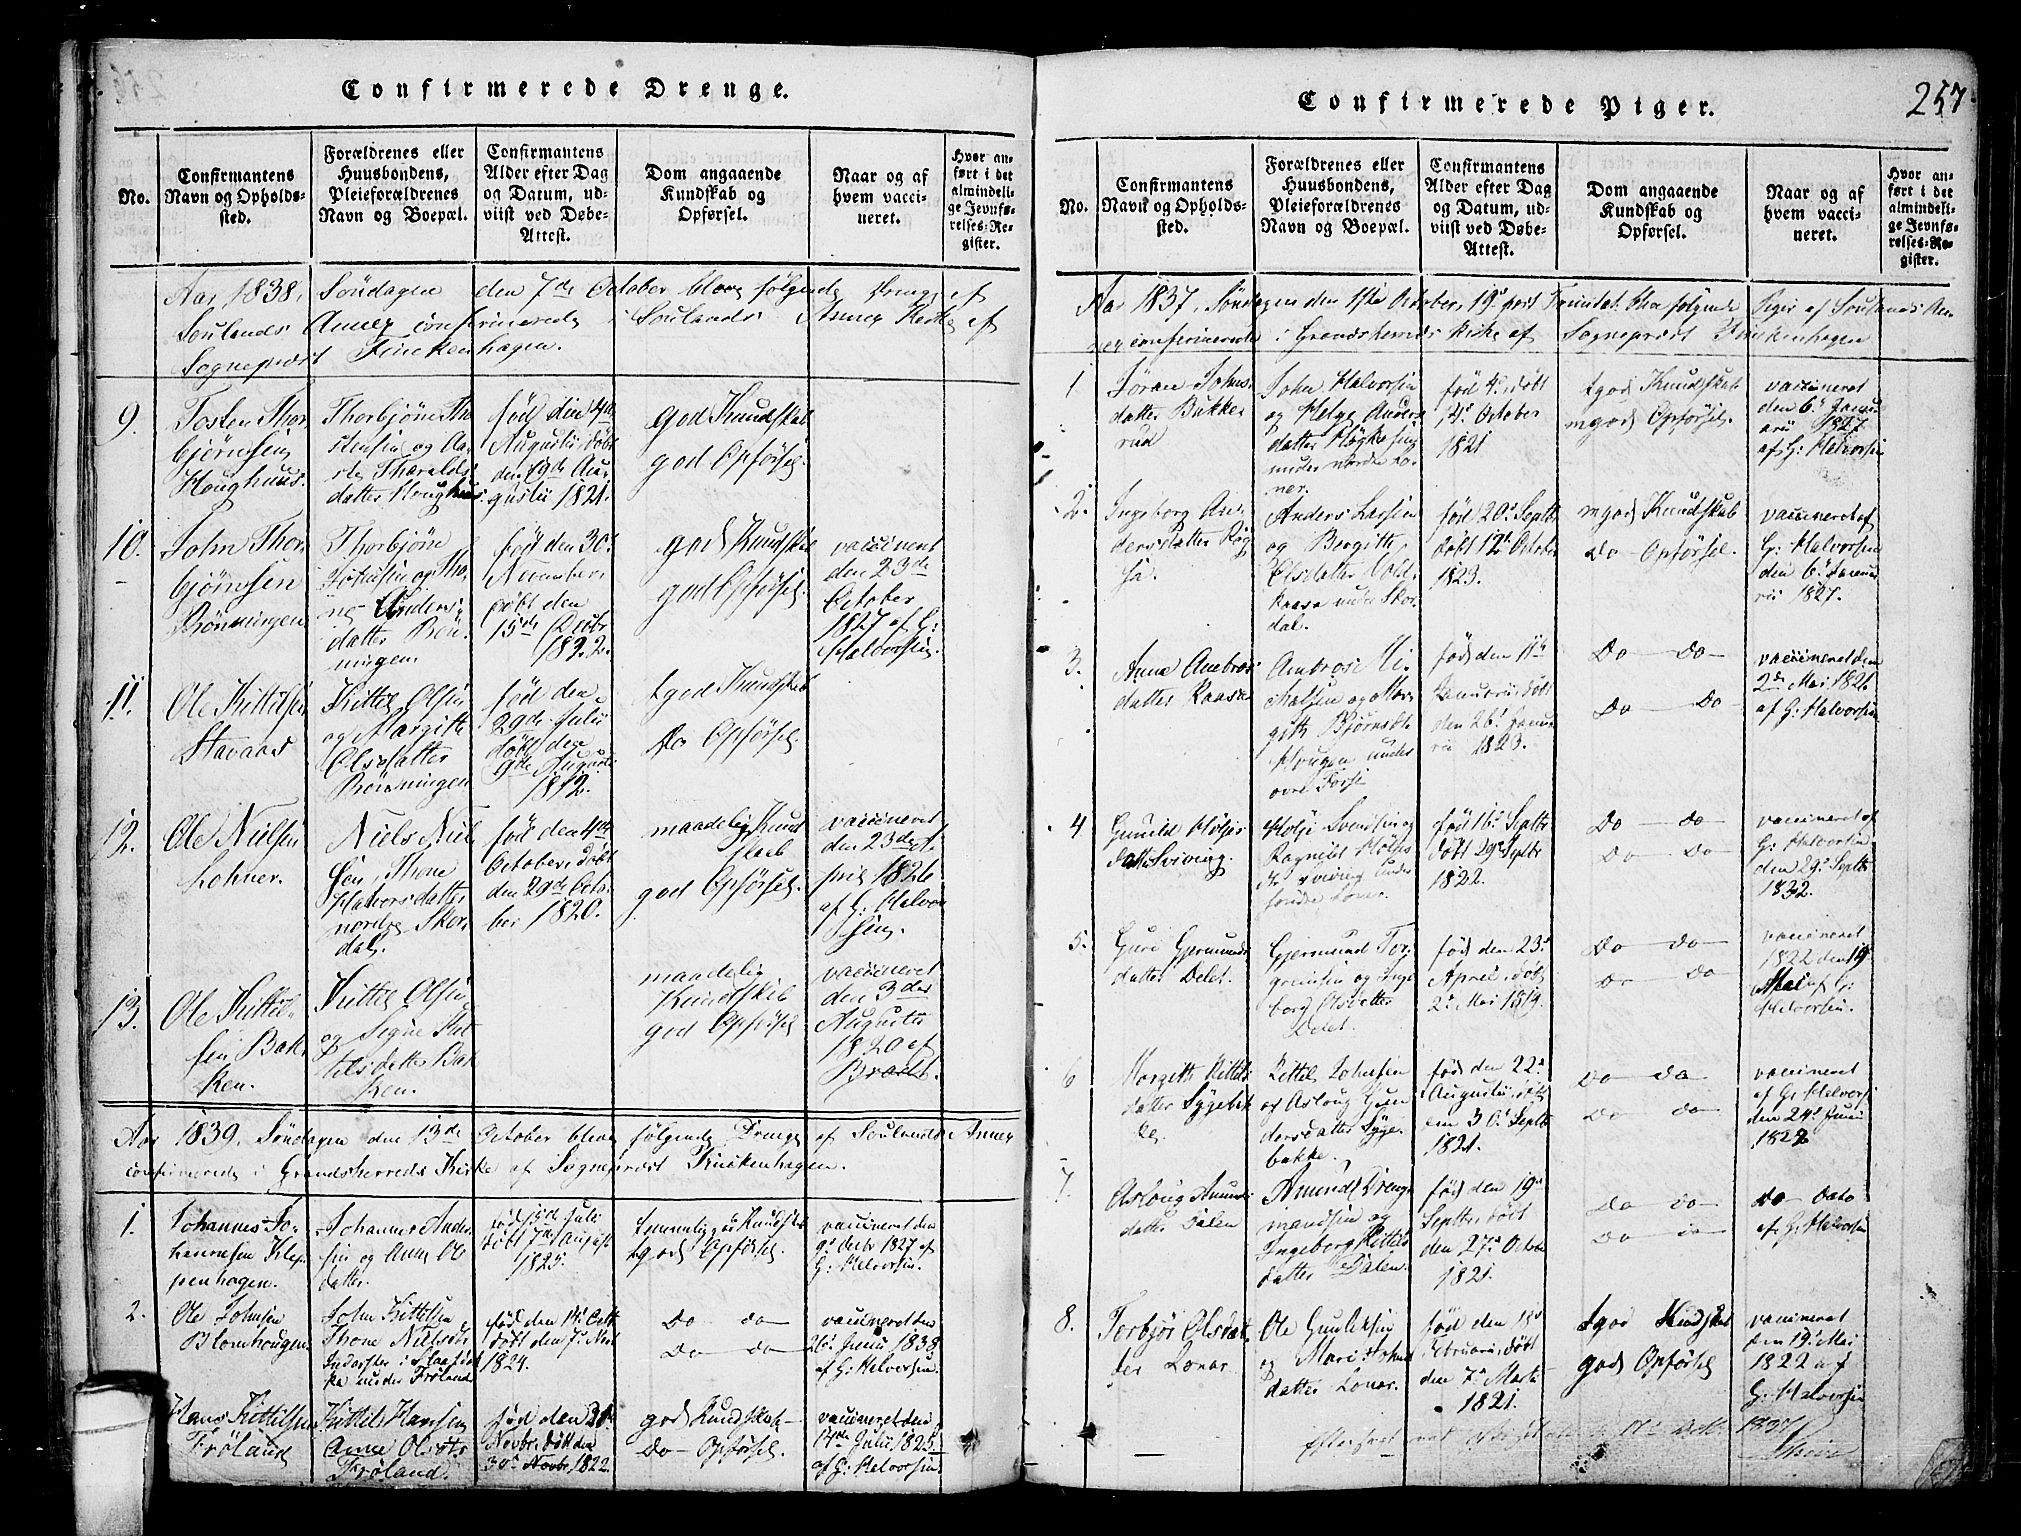 Confirmerede Drenge.
No.
Confirmantens
Navn og Opholds-
sted.
Forældrenes eller
Huusbondens,
Pleieforældrenes
Navn og Boepæl.
Confirmantens
Alder efter Dag
og Datum, ud-
viist ved Døbe-
Attest.
Dom angaaende
Kundskab og
Opførsel.
Naar og af
hvem vacci-
neret.
Hvor an-
ført i det
almindeli-
ge Jevnfø-
relses-Re-
gister.
Aar 1838, Søndagen den 7de October bleve følgende Drenge af
Soulands Annex confirmerede i Soulands Annex Kirke af
Sogneprest Finckenhagen.
9.
Tosten Thor
bjørnsen
Houghuus.
Thorbjørn Tho
stensen og Aa-
se Tharalds
datter Houghuus
fød den 4de
Augustii døbt
den 19de Au-
gustii 1821.
god Kundskab
god Opførsel.
10.
John Thor
bjørnsen
Rønningen
Thorbjørn
Johnsen og Tho
ne Anders
datter Røn
ningen.
fød den 30.
November
døbt den
15de Decbr
1822.
god Kundskab
god Opførsel.
vaccineret
den 23de
October
1827 af G:
Halvorsen.
11.
Ole Kittilsen
Stavaas
Kittel Olsen
og Margith
Olsdatter
Rønningen
fød den
29de Julii
døbt den
9de Augusti
1812.
tgod Kundskab
Do Opførsel
12.
Ole Nielsen
Lohner.
Niels Niel
sen, Thone
Halvorsdatter
nordre Skor
dal.
fød den 4de
October, døbt
den 29de Octo-
ber 1820.
maadelig Kund
skab
god Opførsel.
vaccineret
den 23de A-
pril 1826
af G: Halvor
sen.
13.
Ole Kittel-
sen Bak
ken.
Kittel Olsen
og Signe Kit
telsdatter Bak
ken.
maadelig
Kundskab
god Opførsel
vaccineret
den 3de
Augusti
1820 af
Bradt.
Aar 1839, Søndagen den 13de October bleve følgende Drenge af Soulands Annex
confirmerede i Grandsherreds Kirke af Sogneprest Finckenhagen.
1.
Johannes Jo-
hannesen Klep
penhagen.
Johannes Ander
sen og Anne Ols
datter.
fød 19de Julii
døbt 7de August
1825.
temmelig god Kundskab
tgod Opførsel.
vaccineret den
9de Octbr 1827 af
G: Halvorsen.
2.
Ole Johnsen
Blomhougen
John Kittilsen
Thone Nielsdr
fød den 14de Octb
døbt den 7de Novb
1824.
Do do
Do do
vaccineret den
26de Junii 1838
af G: Halvorsen.
Hans Kittilsen
Frøland
Kittil Hansen
Anne Olsdtr
Frøland.
fød den
Novbr, døbt den
30te Novbr. 1822.
god Kundskab
Do Opførsel.
vaccineret den
Julii 1825
af G: Halvorsen.
Confirmerede Piger.
257
No.
Confirmantens
Navn og Opholds-
sted.
Forældrenes eller
Huusbondens,
Pleieforældrenes
Navn og Boepæl.
Confirmantens
Alder efter Dag
og Datum, ud-
viist ved Døbe-
Attest.
Dom angaaende
Kundskab og
Opførsel.
Naar og af
hvem vacci-
neret.
Hvor an-
ført i det
almindeli-
ge Jevnfø-
relses-Re-
gister.
Aar 1837, Søndagen den 1ste October, 19de post Trinitat. bleve følgende Piger af Soulands An-
nex confirmerede i Grandsherreds Kirke af Sogneprest Finckenhagen
1
Jøran Johns
datter Bakke
rud
John Halvorsen
og Helge Anders
datter
under nordre Lo-
ner.
fød 4de, døbt
14de October
1821
tgod Kundskab
mgod Opførsel.
vaccineret
den 6te Janu
arii 1827
af G: Halvorsen
2.
Ingeborg An-
dersdatter
Anders Larsen
og Bergith
Olsdatter Vold
kaasa under Skor
dal.
fød 20de Septbr
døbt 12te October
1823.
mgod Kundskab
Do Opførsel.
vaccineret af
G: Halvorsen
den 6te Janua
rii 1827.
3.
Anne Ambros
datter Kaasa
Ambros
og Mar
gith Bjørnsdtr
Hougen under
øvre
fød den 11te
Januarii, døbt
den 26de Janua
rii 1823.
Do Do
Do Do
vaccineret den
2den Mai 1826
af G: Halvorsen
4
Gunild Høljes
datter Sviving.
Hølje Svendsen og
Ragnild
Sviving under
søndre Loner.
fød 16de Septbr
døbt 29de Septbr
1822.
Do do
Do Do
vaccineret af
G: Halvorsen
den 29de Septbr
1832.
5.
Guro Gjermunds
datter Dalet.
Gjermund Tor
grimsen og Inge
borg Olsdatter
Dalet.
fød den 23de
April, døbt
2den Mai 1819.
Do do
Do Do
vaccineret
1822 den 19
Mai af G:
Halvorsen.
6
Margith Kittels
datter Sygebak
ke.
Kittel Johnsen
og Aslaug Gun
dersdatter Syge
bakke.
fød den 22de
Augustii, døbt
den 30te Septbr
1821.
Do do
Do do
vaccineret
af G: Halvors.
den 24de Junii
1822
7.
Aslaug Amunds
datter Dalen
Amund Dreng
mandsen og
Ingeborg Kittels
datter Dalen.
fød den 19de
Septbr, døbt
den 27de Octobr
1821.
Do do
Do do
Do Dato
af G: Halvorsen
8.
Torbjør Olsdat
ter Loner.
Ole Gunleksen
og Mari Johns
datter Loner.
fød den 13de
Februarii, døbt
den 7de Marts
1821.
tgod Kundskab
god Opførsel
vaccineret
den 19de Mai
1822 af
G: Halvorsen